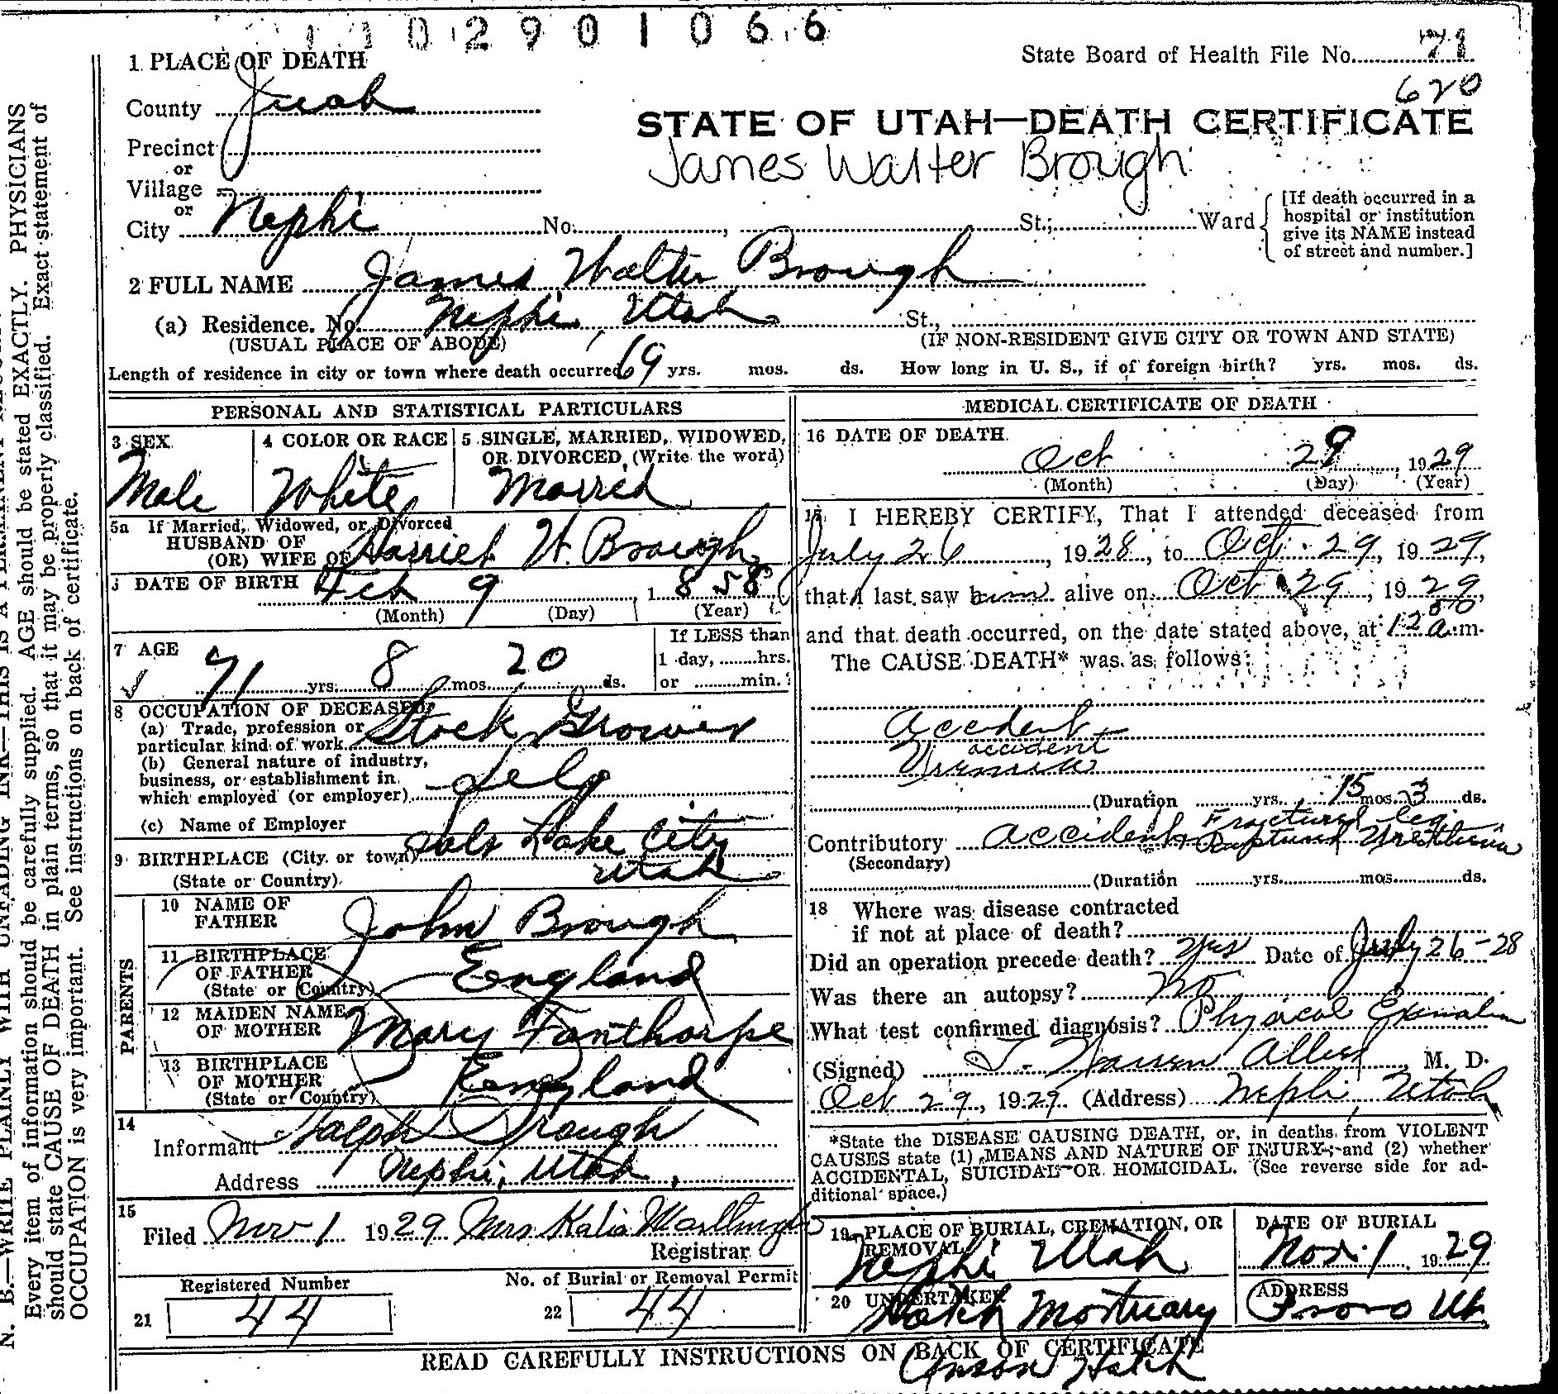 1 1 0 2 9 0 1 0 6 6
State Board of Health File No. 71
620
1 PLACE OF DEATH
County Juab
STATE OF UTAH—DEATH CERTIFICATE
James Walter Brough
Precinct
or
Village
or
City Nephi No. , St.; Ward
[If death occurred in a
hospital or institution
give its NAME instead
of street and number.]
2 FULL NAME James Walter Brough
(a) Residence. No. Nephi, Utah St.,
(USUAL PLACE OF ABODE) (IF NON-RESIDENT GIVE CITY OR TOWN AND STATE)
Length of residence in city or town where death occurred 69 yrs. mos. ds. How long in U. S., if of foreign birth? yrs. mos. ds.
PERSONAL AND STATISTICAL PARTICULARS
3 SEX
Male
4 COLOR OR RACE
White
5 SINGLE, MARRIED, WIDOWED,
OR DIVORCED, (Write the word)
Married
5a If Married, Widowed, or Divorced
HUSBAND OF
(OR) WIFE OF Harriet W. Brough
DATE OF BIRTH Feb 9 1858
(Month) (Day) (Year)
7 AGE
71 yrs. 8 mos. 20 ds.
If LESS than
1 day, ........hrs.
or .........min.
8 OCCUPATION OF DECEASED
(a) Trade, profession or
particular kind of work Stock Grower
(b) General nature of industry,
business, or establishment in
which employed (or employer) Self
(c) Name of Employer
9 BIRTHPLACE (City or town) Salt Lake City
(State or Country) Utah
PARENTS
10 NAME OF
FATHER John Brough
11 BIRTHPLACE
OF FATHER
(State or Country) England
12 MAIDEN NAME
OF MOTHER Mary Fanthorpe
13 BIRTHPLACE
OF MOTHER
(State or Country) England
14
Informant Ralph Brough
Address Nephi, Utah,
15
Filed Nov 1 1929 Mrs Katie
Registrar
Registered Number
21 44
No. of Burial or Removal Permit
22 44
MEDICAL CERTIFICATE OF DEATH
16 DATE OF DEATH
Oct 29, 1929
(Month) (Day) (Year)
17 I HEREBY CERTIFY, That I attended deceased from
July 26, 1928, to Oct. 29, 1929,
that I last saw him alive on Oct 29, 1929,
and that death occurred, on the date stated above, at 12 50 a.m.
The CAUSE DEATH* was as follows:
Accident
accident
(Duration yrs. 15 mos. 3 ds.
Fractured leg
Contributory accident Ruptured Urethra
(Secondary)
(Duration yrs. mos. ds.
18 Where was disease contracted
if not at place of death?
Did an operation precede death? yes Date of July 26-28
Was there an autopsy? no
What test confirmed diagnosis? Physical
(Signed) T. Warren Allred M. D.
Oct 29, 1929. (Address) Nephi, Utah
*State the DISEASE CAUSING DEATH, or, in deaths from VIOLENT
CAUSES state (1) MEANS AND NATURE OF INJURY; and (2) whether
ACCIDENTAL, SUICIDAL OR HOMICIDAL. (See reverse side for ad-
ditional space.)
19 PLACE OF BURIAL, CREMATION, OR
REMOVAL
Nephi Utah
DATE OF BURIAL
Nov. 1, 1929
20 UNDERTAKER
Hatch Mortuary
Anson Hatch
ADDRESS
Provo Ut.
READ CAREFULLY INSTRUCTIONS ON BACK OF CERTIFICATE
N. B.—WRITE PLAINLY WITH UNFADING INK—THIS IS A PERMANENT
Every item of information should be carefully supplied. AGE should be stated EXACTLY. PHYSICIANS
should state CAUSE OF DEATH in plain terms, so that it may be properly classified. Exact statement of
OCCUPATION is very important. See instructions on back of certificate.